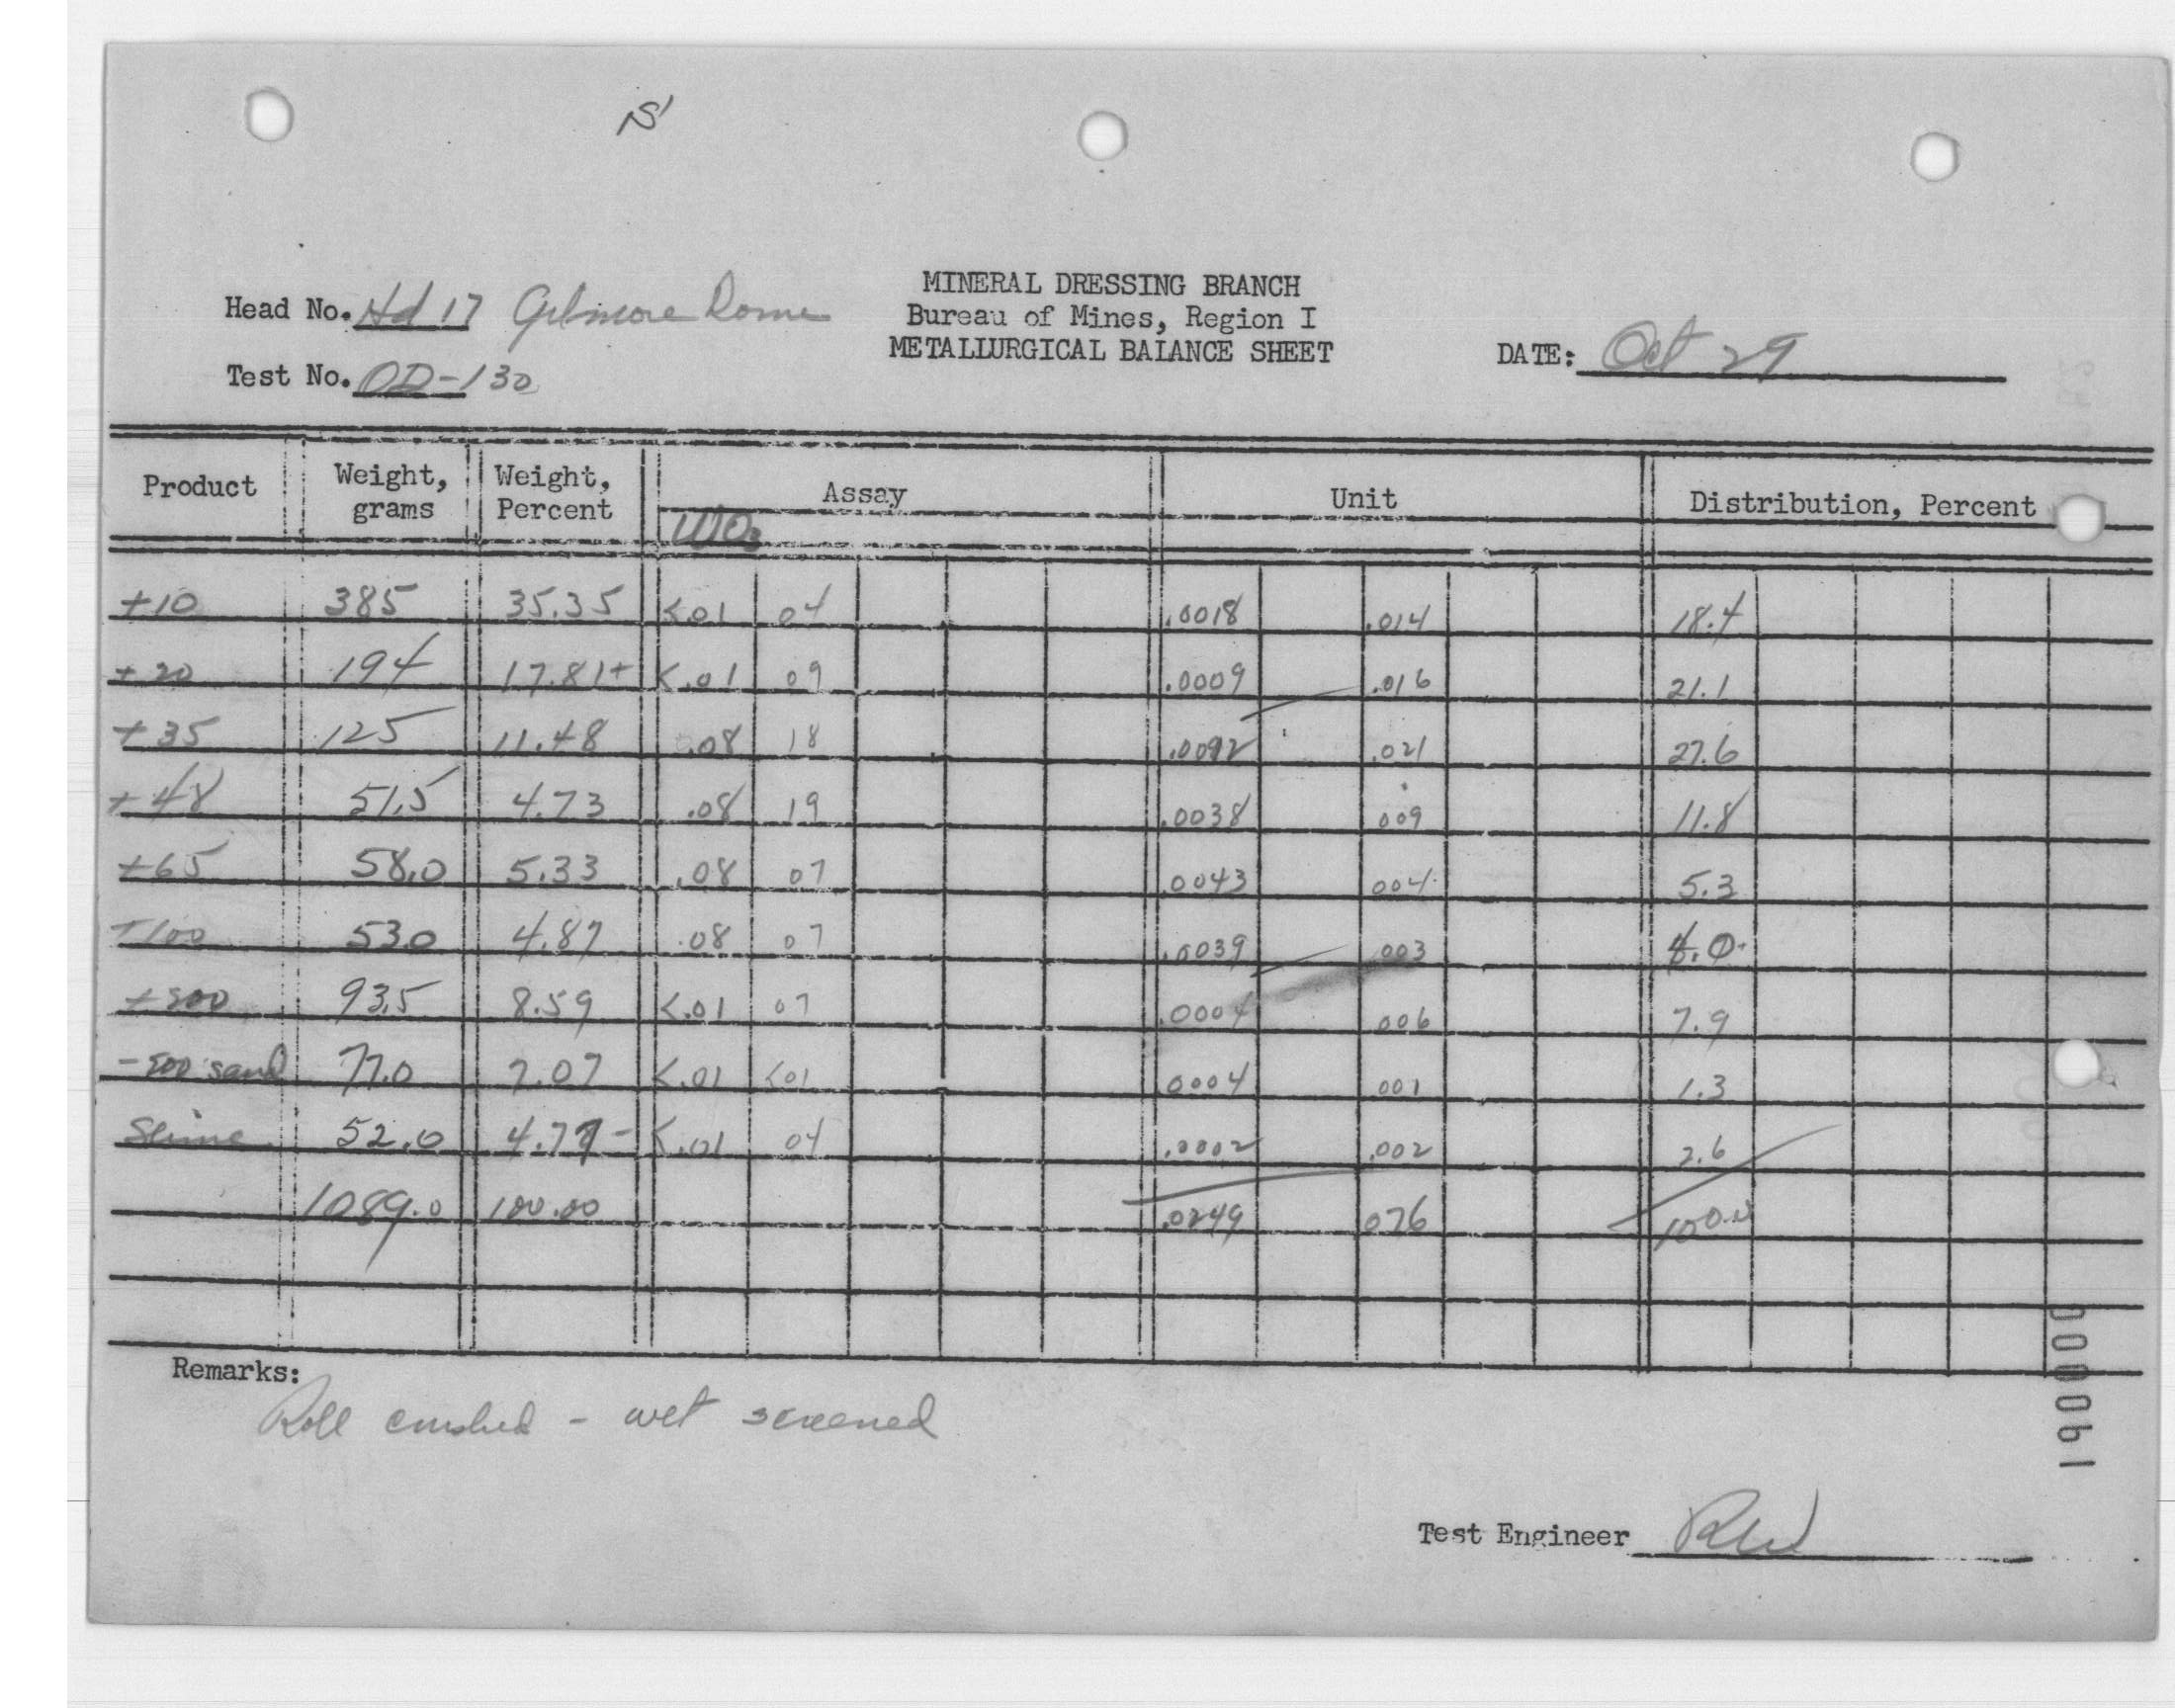 S
MINERAL DRESSING BRANCH
Head No. Hd 17 Gilmore Dome Bureau of Mines, Region I
METALLURGICAL BALANCE SHEET DATE: Oct 29
Test No. OD-130
Product Weight, grams Weight, Percent Assay Unit Distribution, Percent
WO3
+10 385 35.35 <.01 04 .0018 .014 18.4
+20 194 17.81+ <.01 09 .0009 .016 21.1
+35 125 11.48 .08 18 .0092 .021 27.6
+48 51.5 4.73 .08 19 .0038 009 11.8
+65 58.0 5.33 .08 07 .0043 004 5.3
+100 53.0 4.87 .08 07 .0039 003 4.0
+200 93.5 8.59 <.01 07 .0004 006 7.9
-200 sand 77.0 7.07 <.01 <01 .0004 001 1.3
Slime 52.0 4.77- <.01 04 .0002 .002 2.6
1089.0 100.00 .0249 .076 100.0
Remarks:
Roll crushed - wet screened
Test Engineer RW